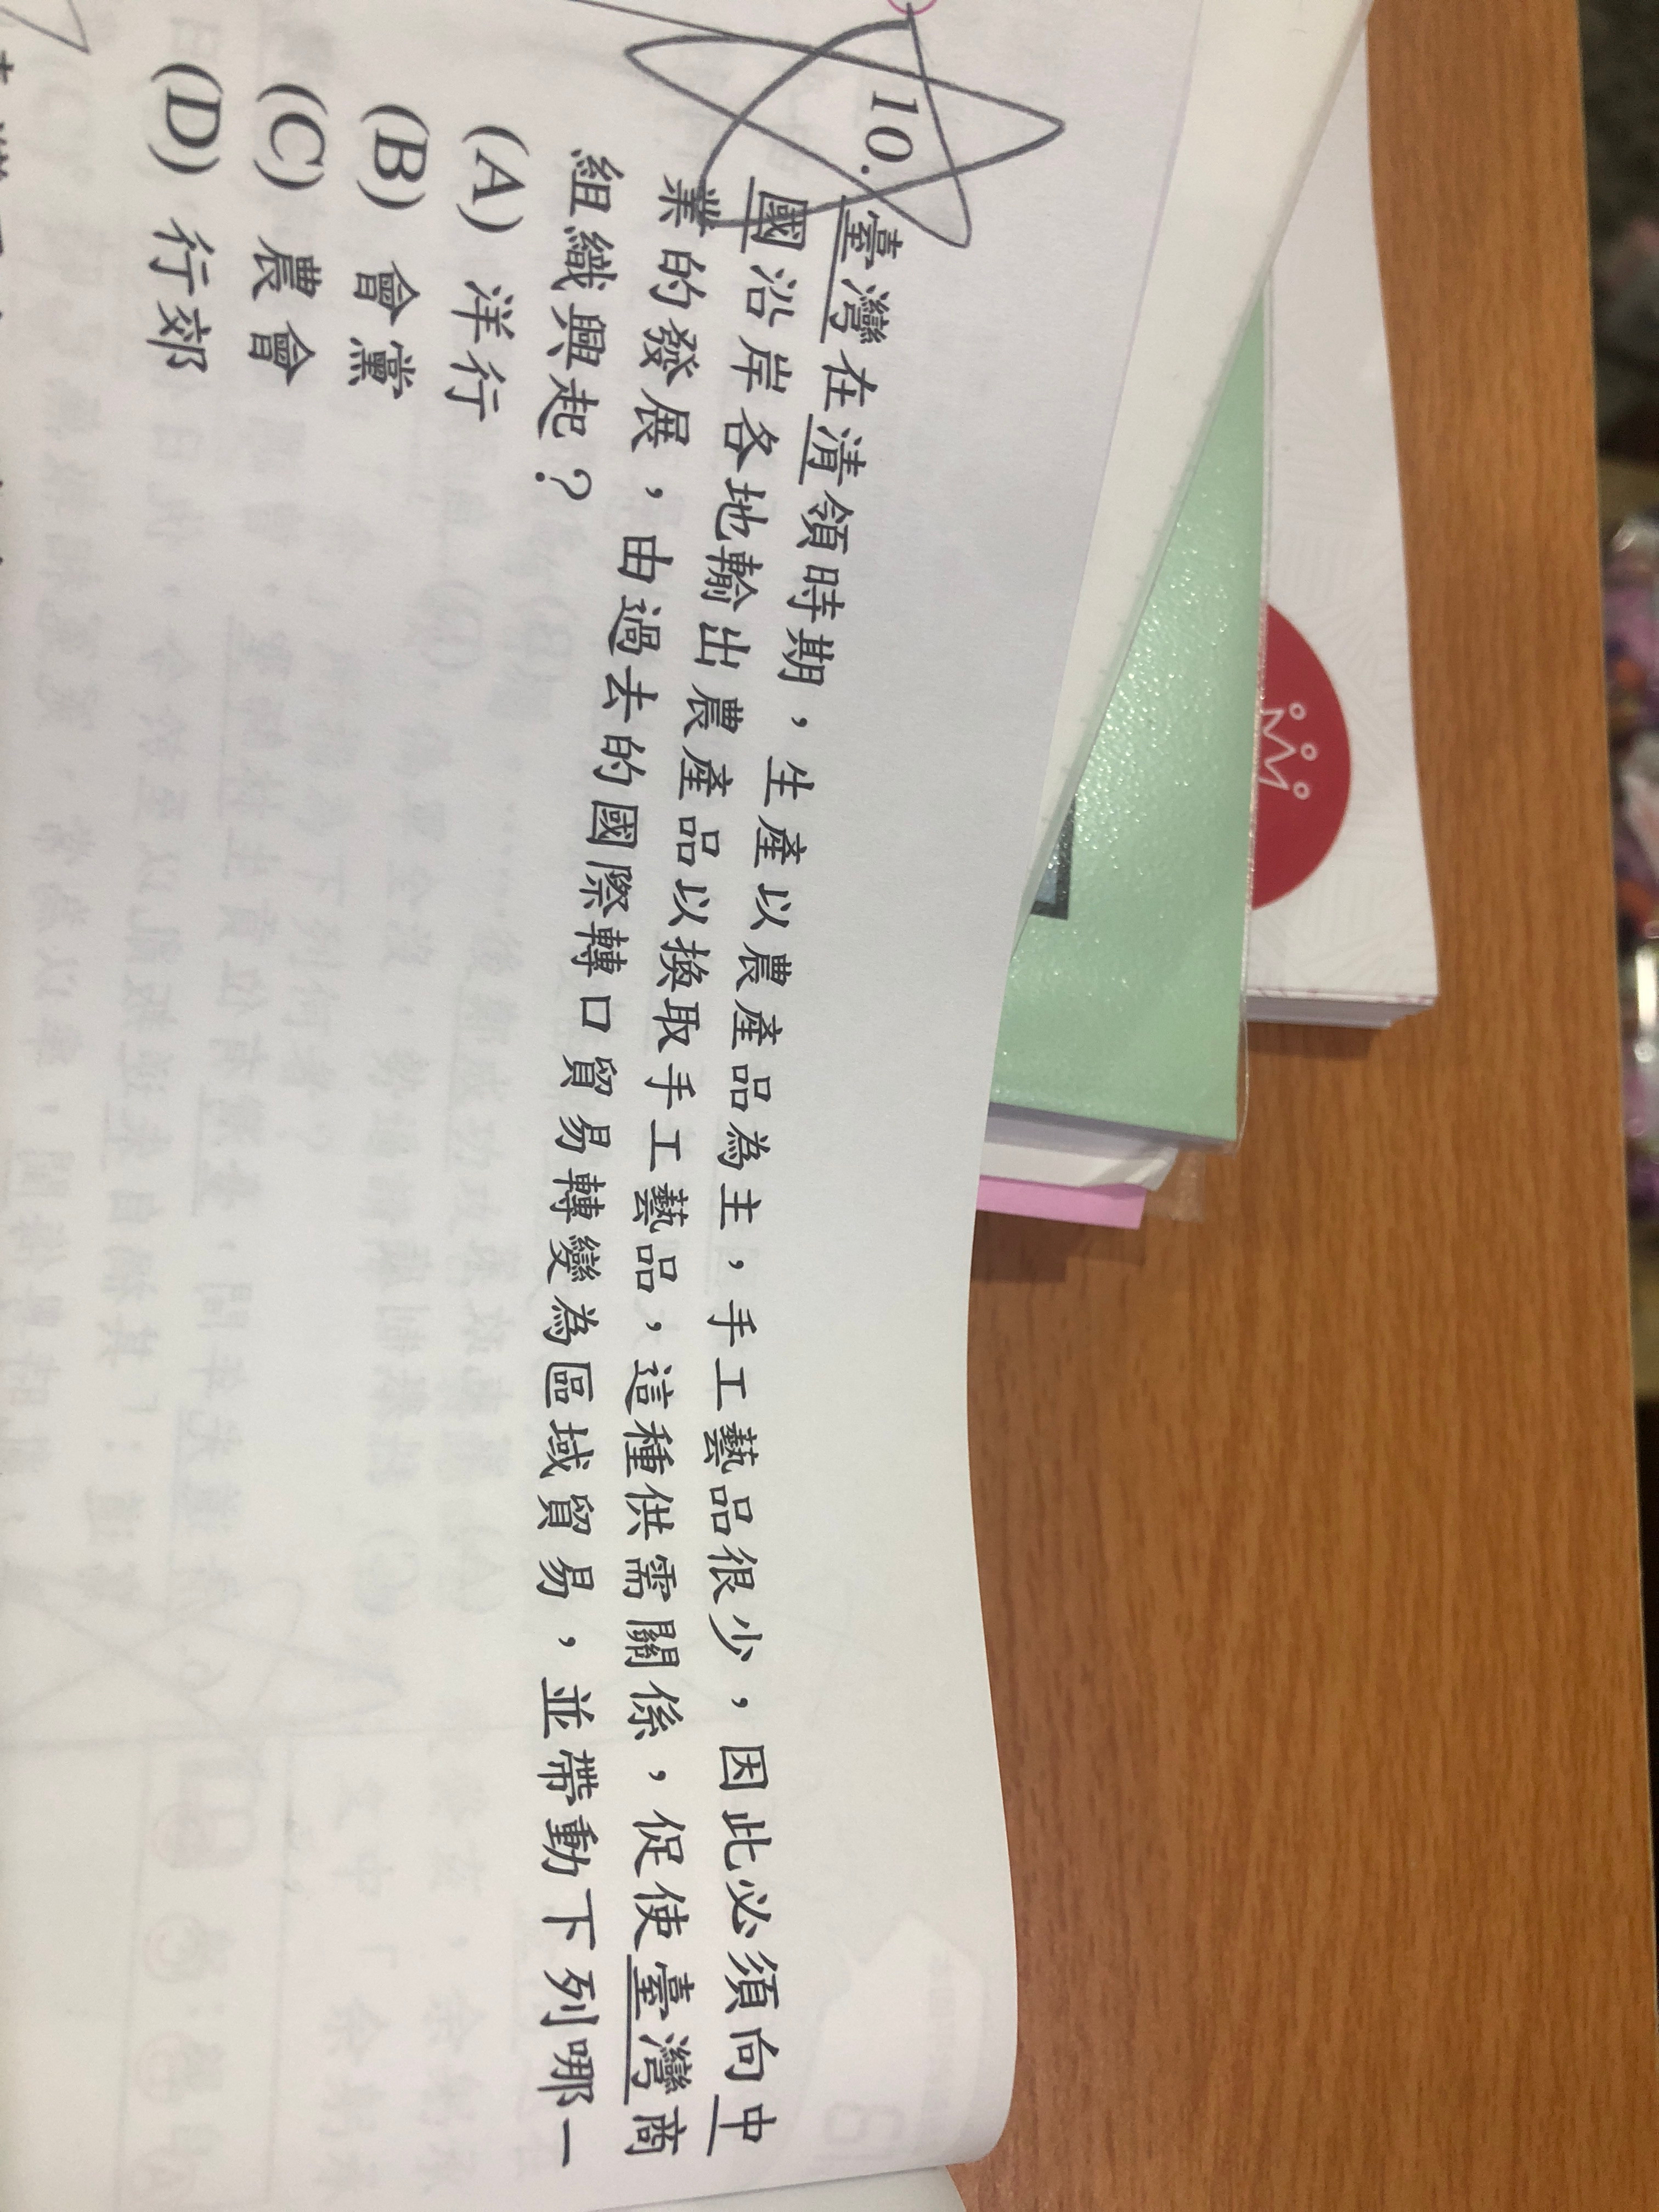 10. 臺灣在清領時期，生產以農產品為主，手工藝品很少，因此必須向中
國沿岸各地輸出農產品以換取手工藝品，這種供需關係，促使臺灣商
業的發展，由過去的國際轉口貿易轉變為區域貿易，並帶動下列哪一
組織興起？
(A) 洋行
(B) 會黨
(C) 農會
(D) 行郊